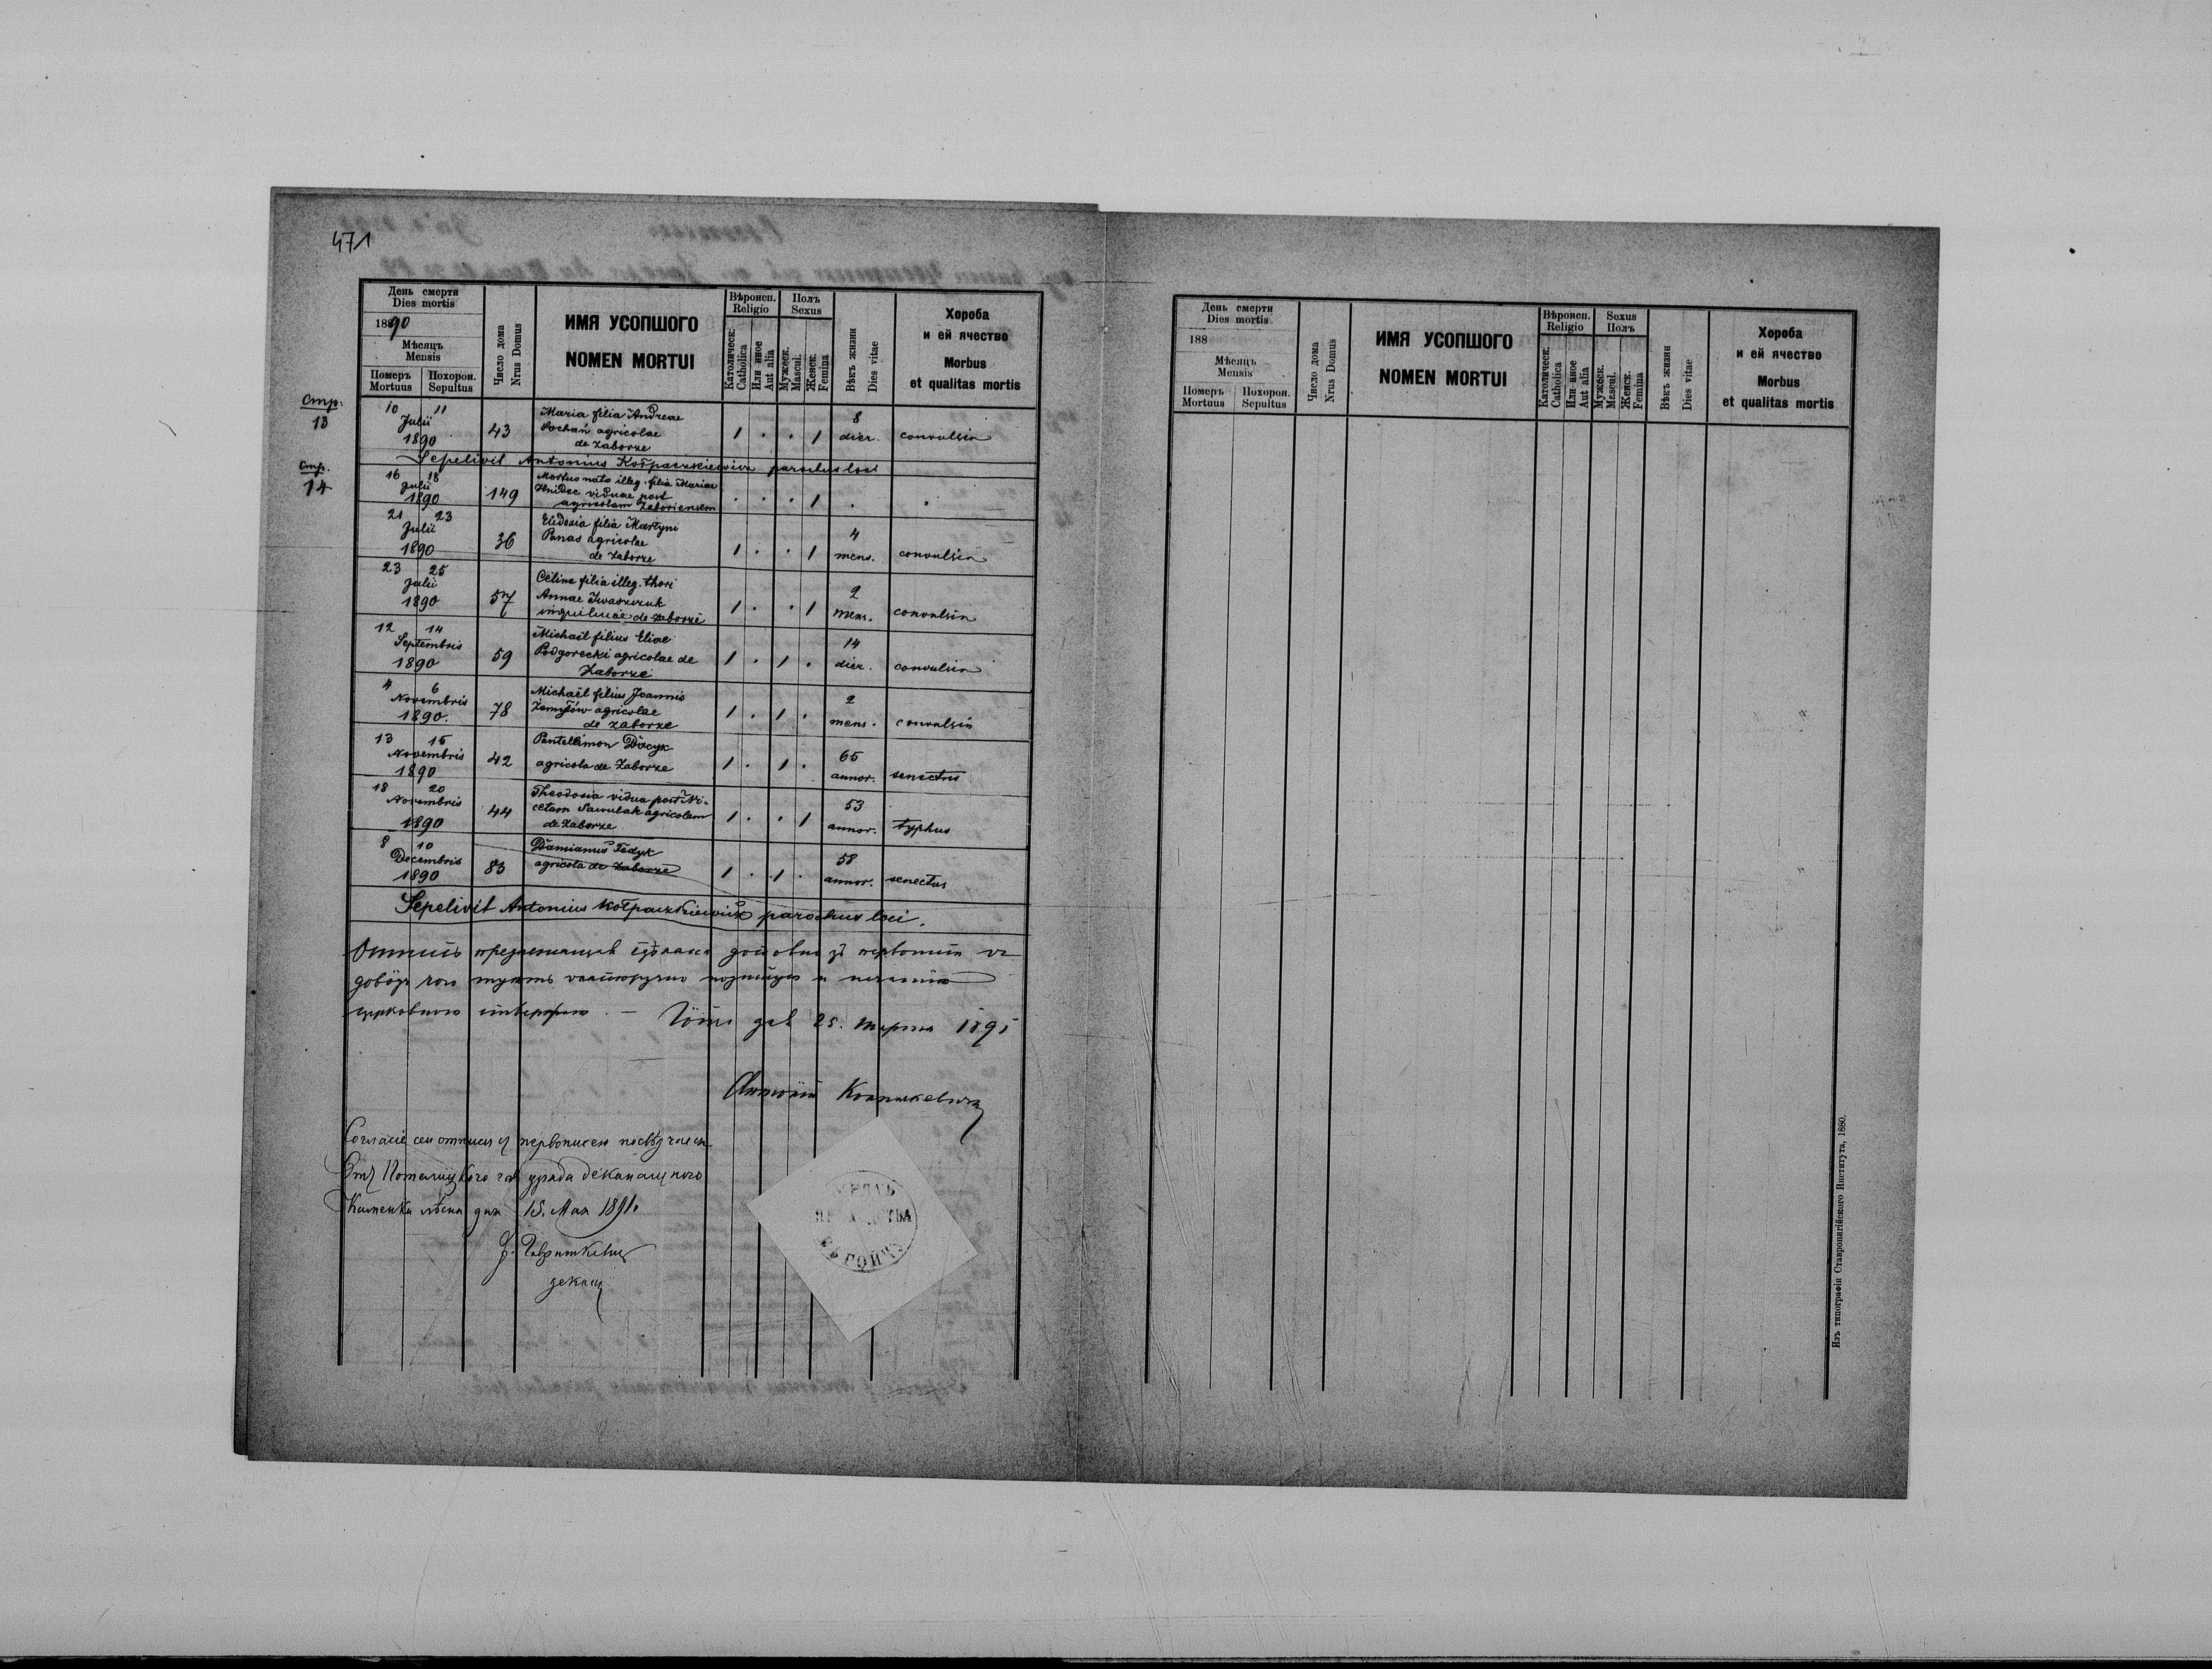 471
День смерти
Dies mortis
1890
Мѣсяцъ
Mensis
Померъ Похорон.
Mortuus Sepultus
Число дома
Nrus Domus
ИМЯ УСОПШОГО
NOMEN MORTUI
Вѣроисп.
Religio
Католическ.
Catholica
Или иное
Aut alia
Полъ
Sexus
Мужеск.
Mascul.
Женск.
Femina
Вѣкъ жизни
Dies vitae
Хороба
и ей ячество
Morbus
et qualitas mortis
Стр.
13
10 11
Julii
1890
43
Maria filia Andreae
Pochań agricolae
de Zaborze
1 . . 1
8
dier.
convulsio
Sepelivit Antonius Kołpaczkiewicz parochus loci
Стр.
14
16 18
Julii
1890
149
Mortuo nata illeg. filia Mariae
Hnidec viduae post
agricolam Zaboriensem
. . . 1 . .
21 23
Julii
1890
36
Eudoxia filia Martyni
Panas agricolae
de Zaborze
1 . . 1
4
mens.
convulsio
23 25
Julii
1890
57
Celina filia illeg. thori
Annae Iwaszczuk
inquilinae de Zaborze
1 . . 1
2
mens.
convulsio
12 14
Septembris
1890
59
Michaël filius Eliae
Podgorecki agricolae de
Zaborze
1 . 1 .
14
dier.
convulsio
4 6
Novembris
1890.
78
Michaël filius Joannis
agricolae
de Zaborze
1 . 1 .
2
mens.
convulsio
13 15
Novembris
1890
42
Pantelimon Dacyk
agricola de Zaborze
1 . 1 .
65
annor.
senectus
18 20
Novembris
1890
44
Theodosia vidua post Ni-
cetam Sawulak agricolam
de Zaborze
1 . . 1
53
annor.
typhus
8 10
Decembris
1890
83
Damianus Fedyk
agricola de Zaborze
1 . 1 .
58
annor.
senectus
Sepelivit Antonius Kołpaczkiewicz parochus loci.
дословно зъ
печатію
церковною — дня 25. марта 1891
Антоній Колпачкевичъ
Согласіе сеи отписи съ первописею посвѣдчаеся
Отъ Потелицкого уряда деканального
Каменка лѣсна дня 15. Мая 1891.
деканъ
День смерти
Dies mortis
188
Мѣсяцъ
Mensis
Померъ Похорон.
Mortuus Sepultus
Число дома
Nrus Domus
ИМЯ УСОПШОГО
NOMEN MORTUI
Вѣроисп.
Religio
Католическ.
Catholica
Или иное
Aut alia
Sexus
Полъ
Мужеск.
Mascul.
Женск.
Femina
Вѣкъ жизни
Dies vitae
Хороба
и ей ячество
Morbus
et qualitas mortis
Изъ типографіи Ставропигійского Института, 1880.